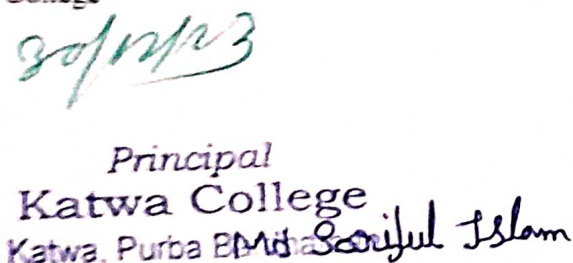 College
30/12/23
Principal
Katwa College
Katwa, Purba
Md Sariful Islam